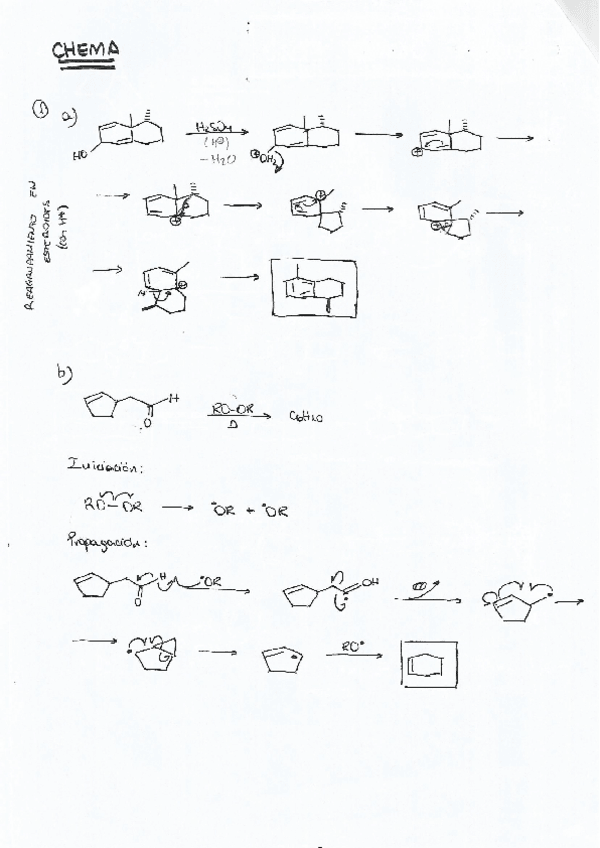 CHEMA
① a)
HO
H₂SO₄
(H⊕)
-H₂O
⊕OH₂
REAGRUPAMIENTO EN
ESTEROIDES
(con H+)
H
b)
H
O
RO-OR
Δ
C₆H₁₀
Iniciación:
RO-OR → •OR + •OR
Propagación:
H
O
•OR
OH
CO
RO•